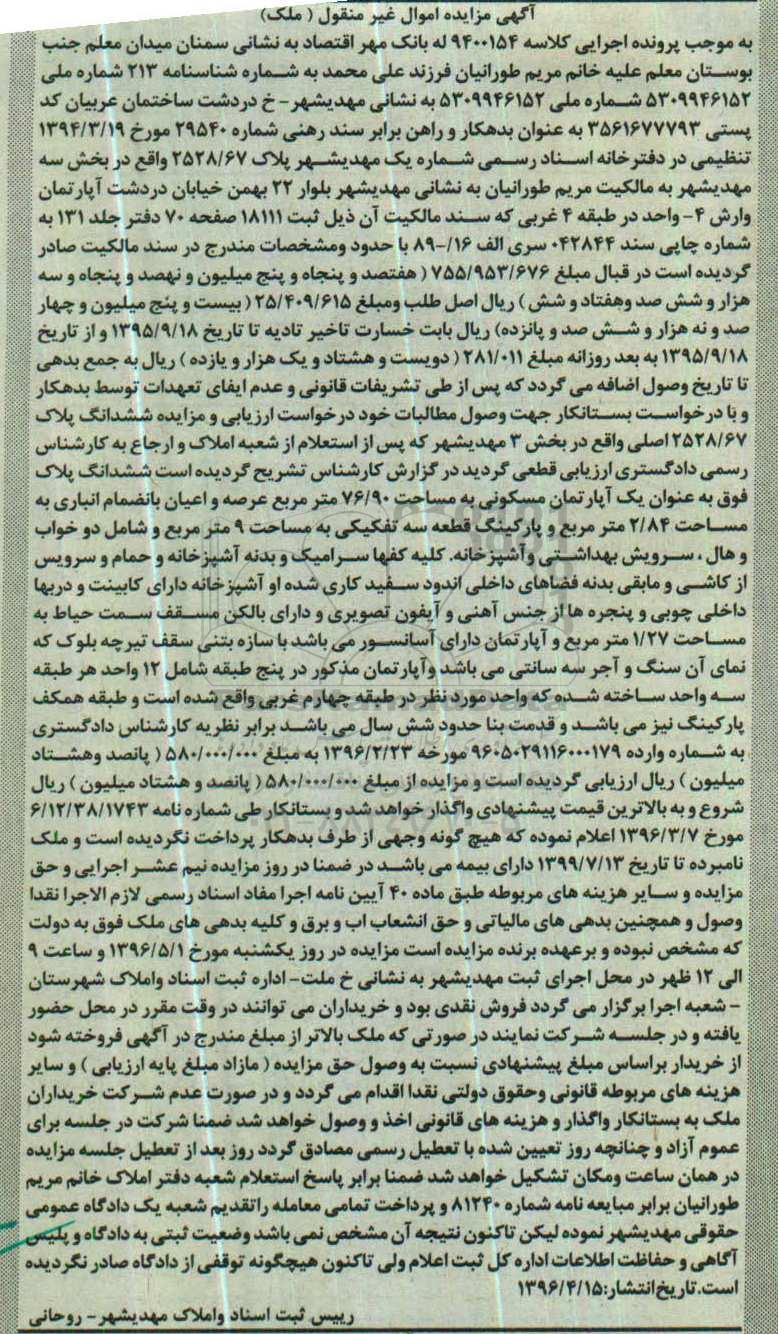 آگهی مزایده اموال غیر منقول ( ملک)
به موجب پرونده اجرایی کلاسه ۹۴۰۰۱۵۴ له بانک مهر اقتصاد به نشانی سمنان میدان معلم جنب
بوستان معلم علیه خانم مریم طورانیان فرزند علی محمد به شماره شناسنامه ۲۱۳ شماره ملی
۵۳۰۹۹۴۶۱۵۲ شماره ملی ۵۳۰۹۹۴۶۱۵۲ به نشانی مهدیشهر- خ دردشت ساختمان عربیان کد
پستی ۳۵۶۱۶۷۷۷۹۳ به عنوان بدهکار و راهن برابر سند رهنی شماره ۲۹۵۴۰ مورخ ۱۳۹۴/۳/۱۹
تنظیمی در دفترخانه اسناد رسمی شماره یک مهدیشهر پلاک ۲۵۲۸/۶۷ واقع در بخش سه
مهدیشهر به مالکیت مریم طورانیان به نشانی مهدیشهر بلوار ۲۲ بهمن خیابان دردشت آپارتمان
وارش ۴- واحد در طبقه ۴ غربی که سند مالکیت آن ذیل ثبت ۱۸۱۱۱ صفحه ۷۰ دفتر جلد ۱۳۱ به
شماره چاپی سند ۰۴۲۸۴۴ سری الف ۱۶/-۸۹ با حدود ومشخصات مندرج در سند مالکیت صادر
گردیده است در قبال مبلغ ۷۵۵/۹۵۳/۶۷۶ ( هفتصد و پنجاه و پنج میلیون و نهصد و پنجاه و سه
هزار و شش صد وهفتاد و شش ) ریال اصل طلب ومبلغ ۲۵/۴۰۹/۶۱۵ ( بیست و پنج میلیون و چهار
صد و نه هزار و شش صد و پانزده) ریال بابت خسارت تاخیر تادیه تا تاریخ ۱۳۹۵/۹/۱۸ و از تاریخ
۱۳۹۵/۹/۱۸ به بعد روزانه مبلغ ۲۸۱/۰۱۱ ( دویست و هشتاد و یک هزار و یازده ) ریال به جمع بدهی
تا تاریخ وصول اضافه می گردد که پس از طی تشریفات قانونی و عدم ایفای تعهدات توسط بدهکار
و با درخواست بستانکار جهت وصول مطالبات خود درخواست ارزیابی و مزایده ششدانگ پلاک
۲۵۲۸/۶۷ اصلی واقع در بخش ۳ مهدیشهر که پس از استعلام از شعبه املاک و ارجاع به کارشناس
رسمی دادگستری ارزیابی قطعی گردید در گزارش کارشناس تشریح گردیده است ششدانگ پلاک
فوق به عنوان یک آپارتمان مسکونی به مساحت ۷۶/۹۰ متر مربع عرصه و اعیان بانضمام انباری به
مساحت ۲/۸۴ متر مربع و پارکینگ قطعه سه تفکیکی به مساحت ۹ متر مربع و شامل دو خواب
و هال ، سرویش بهداشتی وآشپزخانه. کلیه کفها سرامیک و بدنه آشپزخانه و حمام و سرویس
از کاشی و مابقی بدنه فضاهای داخلی اندود سفید کاری شده او آشپزخانه دارای کابینت و دربها
داخلی چوبی و پنجره ها از جنس آهنی و آیفون تصویری و دارای بالکن مسقف سمت حیاط به
مساحت ۱/۲۷ متر مربع و آپارتمان دارای آسانسور می باشد با سازه بتنی سقف تیرچه بلوک که
نمای آن سنگ و آجر سه سانتی می باشد وآپارتمان مذکور در پنج طبقه شامل ۱۲ واحد هر طبقه
سه واحد ساخته شده که واحد مورد نظر در طبقه چهارم غربی واقع شده است و طبقه همکف
پارکینگ نیز می باشد و قدمت بنا حدود شش سال می باشد برابر نظریه کارشناس دادگستری
به شماره وارده ۹۶۰۵۰۲۹۱۱۶۰۰۰۱۷۹ مورخه ۱۳۹۶/۲/۲۳ به مبلغ ۵۸۰/۰۰۰/۰۰۰ ( پانصد وهشتاد
میلیون ) ریال ارزیابی گردیده است و مزایده از مبلغ ۵۸۰/۰۰۰/۰۰۰ ( پانصد و هشتاد میلیون ) ریال
شروع و به بالاترین قیمت پیشنهادی واگذار خواهد شد و بستانکار طی شماره نامه ۶/۱۲/۳۸/۱۷۴۳
مورخ ۱۳۹۶/۳/۷ اعلام نموده که هیچ گونه وجهی از طرف بدهکار پرداخت نگردیده است و ملک
نامبرده تا تاریخ ۱۳۹۹/۷/۱۳ دارای بیمه می باشد در ضمنا در روز مزایده نیم عشر اجرایی و حق
مزایده و سایر هزینه های مربوطه طبق ماده ۴۰ آیین نامه اجرا مفاد اسناد رسمی لازم الاجرا نقدا
وصول و همچنین بدهی های مالیاتی و حق انشعاب اب و برق و کلیه بدهی های ملک فوق به دولت
که مشخص نبوده و برعهده برنده مزایده است مزایده در روز یکشنبه مورخ ۱۳۹۶/۵/۱ و ساعت ۹
الی ۱۲ ظهر در محل اجرای ثبت مهدیشهر به نشانی خ ملت- اداره ثبت اسناد واملاک شهرستان
- شعبه اجرا برگزار می گردد فروش نقدی بود و خریداران می توانند در وقت مقرر در محل حضور
یافته و در جلسه شرکت نمایند در صورتی که ملک بالاتر از مبلغ مندرج در آگهی فروخته شود
از خریدار براساس مبلغ پیشنهادی نسبت به وصول حق مزایده ( مازاد مبلغ پایه ارزیابی ) و سایر
هزینه های مربوطه قانونی وحقوق دولتی نقدا اقدام می گردد و در صورت عدم شرکت خریداران
ملک به بستانکار واگذار و هزینه های قانونی اخذ و وصول خواهد شد ضمنا شرکت در جلسه برای
عموم آزاد و چنانچه روز تعیین شده با تعطیل رسمی مصادق گردد روز بعد از تعطیل جلسه مزایده
در همان ساعت ومکان تشکیل خواهد شد ضمنا برابر پاسخ استعلام شعبه دفتر املاک خانم مریم
طورانیان برابر مبایعه نامه شماره ۸۱۲۴۰ و پرداخت تمامی معامله راتقدیم شعبه یک دادگاه عمومی
حقوقی مهدیشهر نموده لیکن تاکنون نتیجه آن مشخص نمی باشد وضعیت ثبتی به دادگاه و پلیس
آگاهی و حفاظت اطلاعات اداره کل ثبت اعلام ولی تاکنون هیچگونه توقفی از دادگاه صادر نگردیده
است.تاریخ انتشار:۱۳۹۶/۴/۱۵
رییس ثبت اسناد واملاک مهدیشهر- روحانی